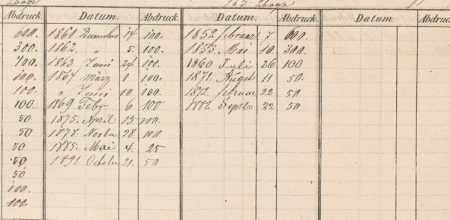 Abdruck. Datum. Abdruck Datum. Abdruck. Datum. Abdruck
600. 1860 14 100. 1852 februar 7 600.
300. 1862. „ 5 100. 1855. Mai 10 300.
700. 1863 Juni 24 100. 1860 Juli 26 100
100. 1867 März 1 100. 1871. August 11 50.
100. „ Juni 10 100. 1872. februar 22 50.
100. 1869 Febr 6 100 1882 Septbr 22 50
50 1875. April 13 100.
50 1878. Novbr 28 100
50. 1885. Mai 4. 25
50. 1891. Octobr 21. 50
50
100.
100.